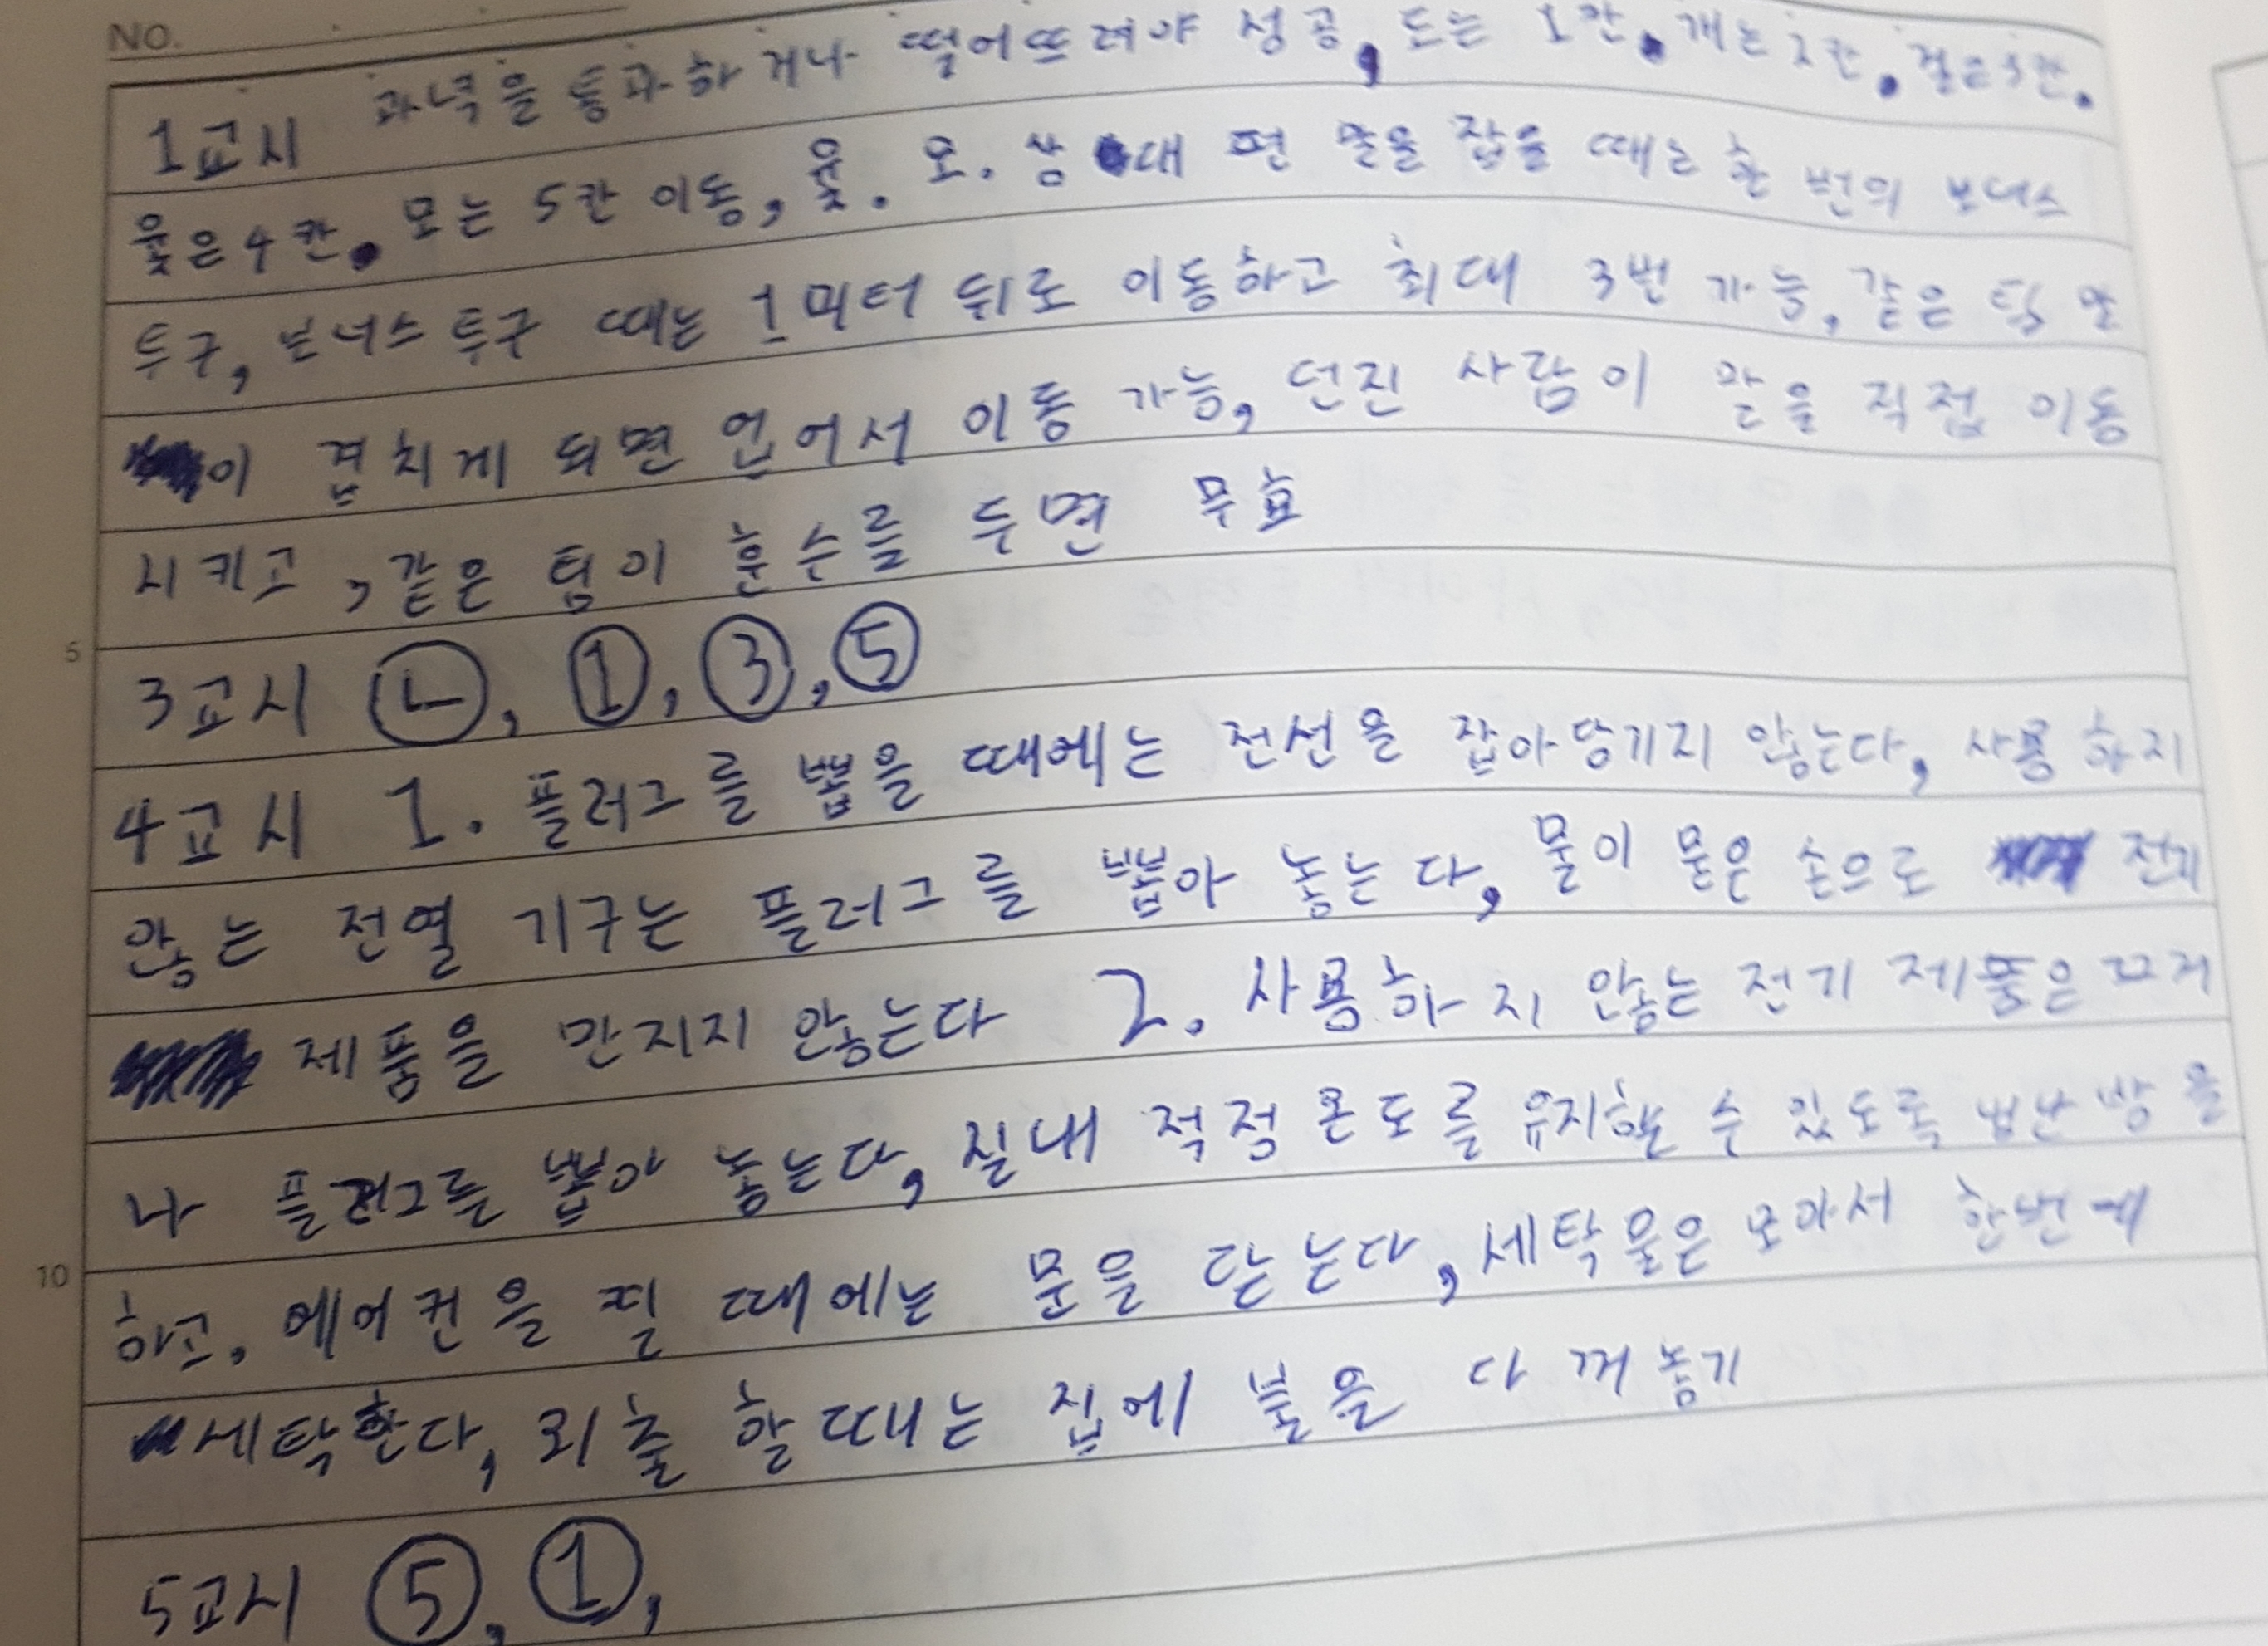 NO.
1교시 과녁을 통과하거나 떨어뜨려야 성공, 도는 1칸. 개는 2칸. 걸은 3칸.
윷은 4칸. 모는 5칸 이동, 윷. 모. 상대 편 말을 잡을 때는 한 번의 보너스
투구, 보너스 투구 때는 1미터 뒤로 이동하고 최대 3번 가능, 같은 팀 말
이 겹치게 되면 업어서 이동 가능, 던진 사람이 말을 직접 이동
시키고, 같은 팀이 훈수를 두면 무효
5
3교시 ㉡, ①, ③, ⑤
4교시 1. 플러그를 뽑을 때에는 전선을 잡아당기지 않는다, 사용하지
않는 전열 기구는 플러그를 뽑아 놓는다, 물이 묻은 손으로 전기
제품을 만지지 않는다 2. 사용하지 않는 전기 제품은 끄거
나 플러그를 뽑아 놓는다, 실내 적정 온도를 유지할 수 있도록 냉난방을
10
하고. 에어컨을 필 때에는 문을 닫는다, 세탁물은 모아서 한번에
세탁한다, 외출 할 때는 집에 불을 다 꺼 놓기
5교시 ⑤, ①,